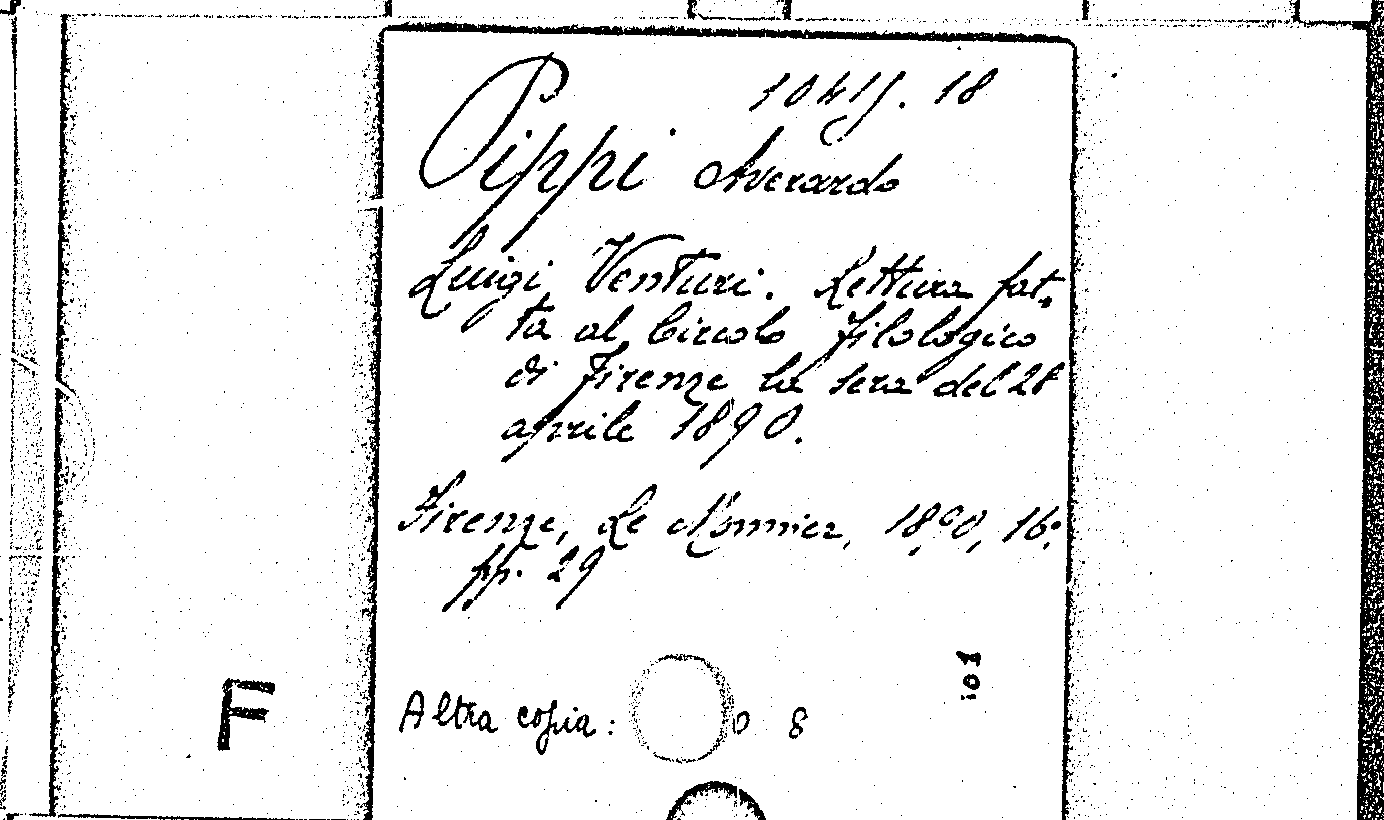 10415. 18
Pippi Averardo
Luigi Venturi. Lettura fat-
ta al Circolo filologico
di Firenze la sera del 28
aprile 1890.
Firenze, Le Monnier, 1890, 16°
pp. 29
101
F
Altra copia: 0 8